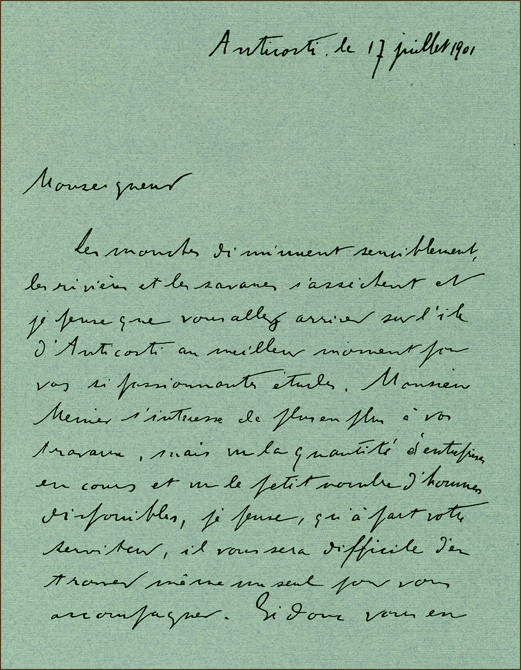 Anticosti. le 17 juillet 1901
Monseigneur
Les mouches diminuent sensiblement,
les rivières et les savanes s'assèchent et
je pense que vous allez arriver sur l'île
d'Anticosti au meilleur moment pour
vos si passionnantes études. Monsieur
Menier s'intéresse de plus en plus à vos
travaux, mais vu la quantité d'entreprises
en cours et vu le petit nombre d'hommes
disponibles, je pense, qu'à part votre
serviteur, il vous sera difficile d'en
trouver même un seul pour vous
accompagner. Si donc vous en